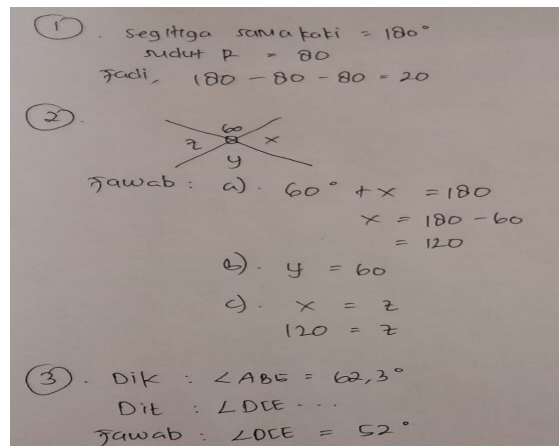 ① . segitiga sama kaki = 180°
sudut R = 80
Jadi, 180 - 80 - 80 = 20
② .
60
z x
y
Jawab : a) . 60° + x = 180
x = 180 - 60
= 120
b) . y = 60
c) . x = z
120 = z
③ . Dik : ∠ABE = 62,3°
Dit : ∠DCE ...
Jawab : ∠DCE = 52°